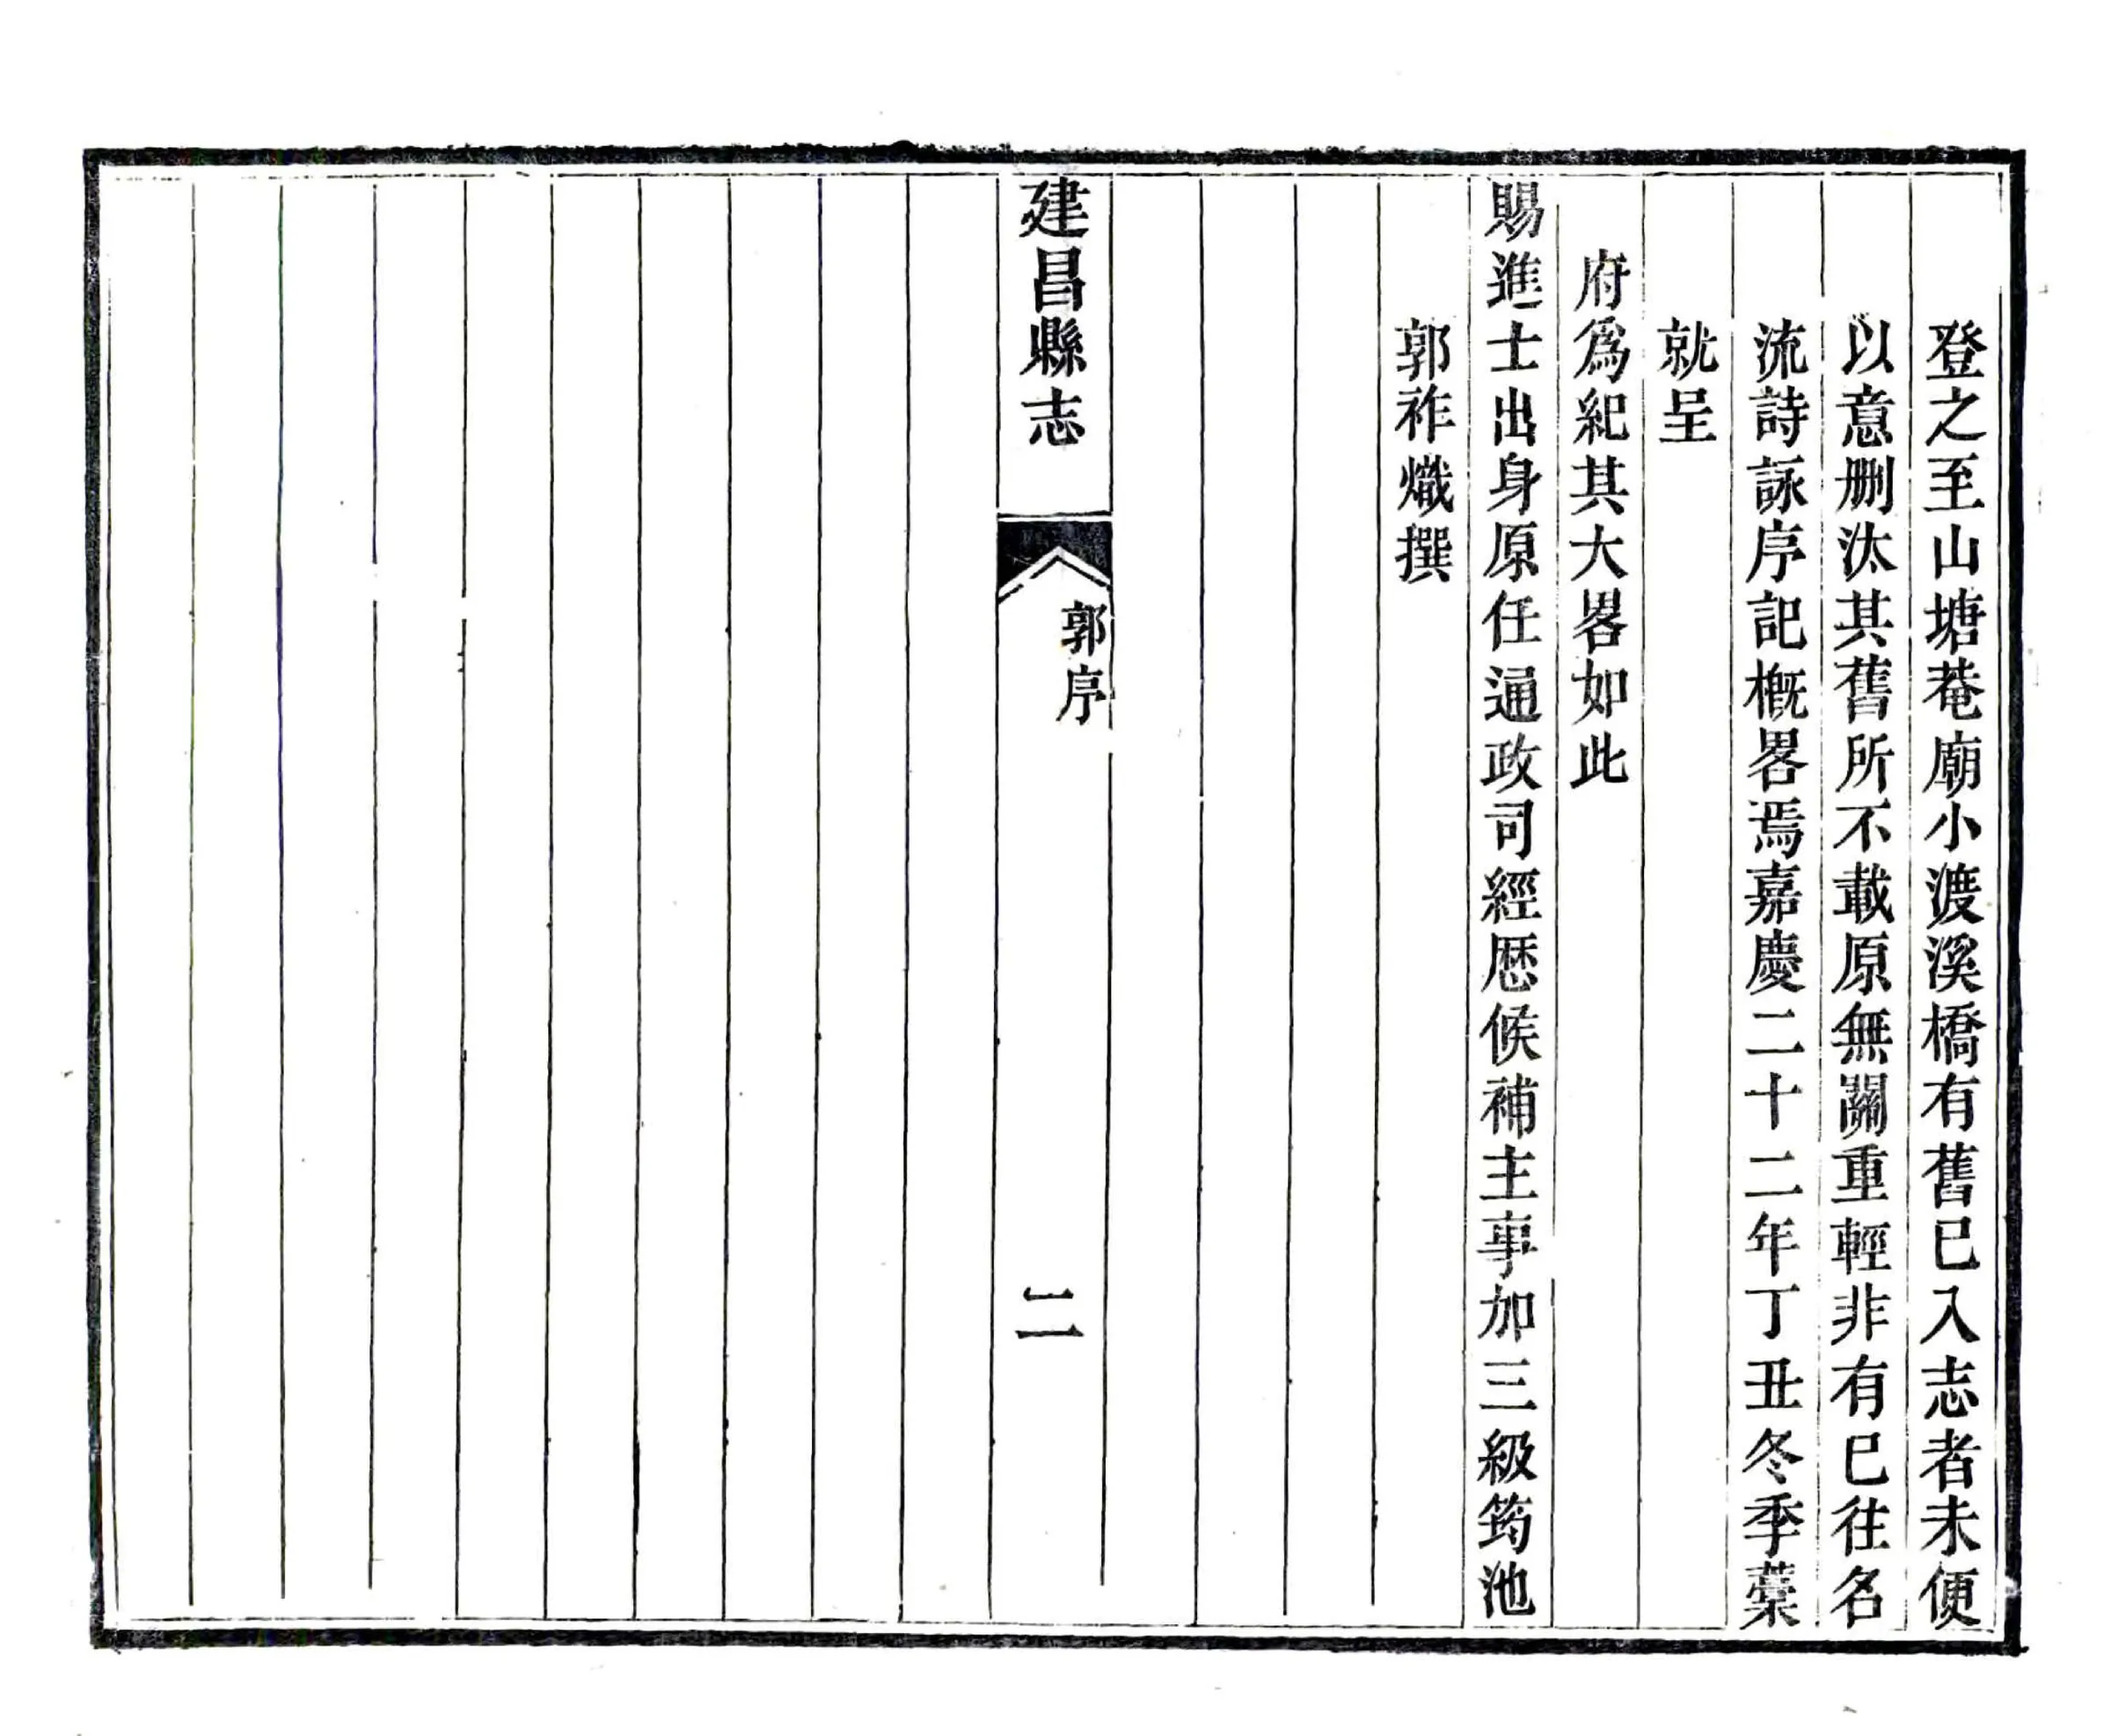 登之至山塘菴廟小渡溪橋有舊已入志者未便
以意刪汰其舊所不載原無關重輕非有已往名
流詩詠序記概畧焉嘉慶二十二年丁丑冬季藁
就呈
府爲紀其大畧如此
賜進士出身原任通政司經歴候補主事加三級筠池
郭祚熾撰
建昌縣志
郭序
二